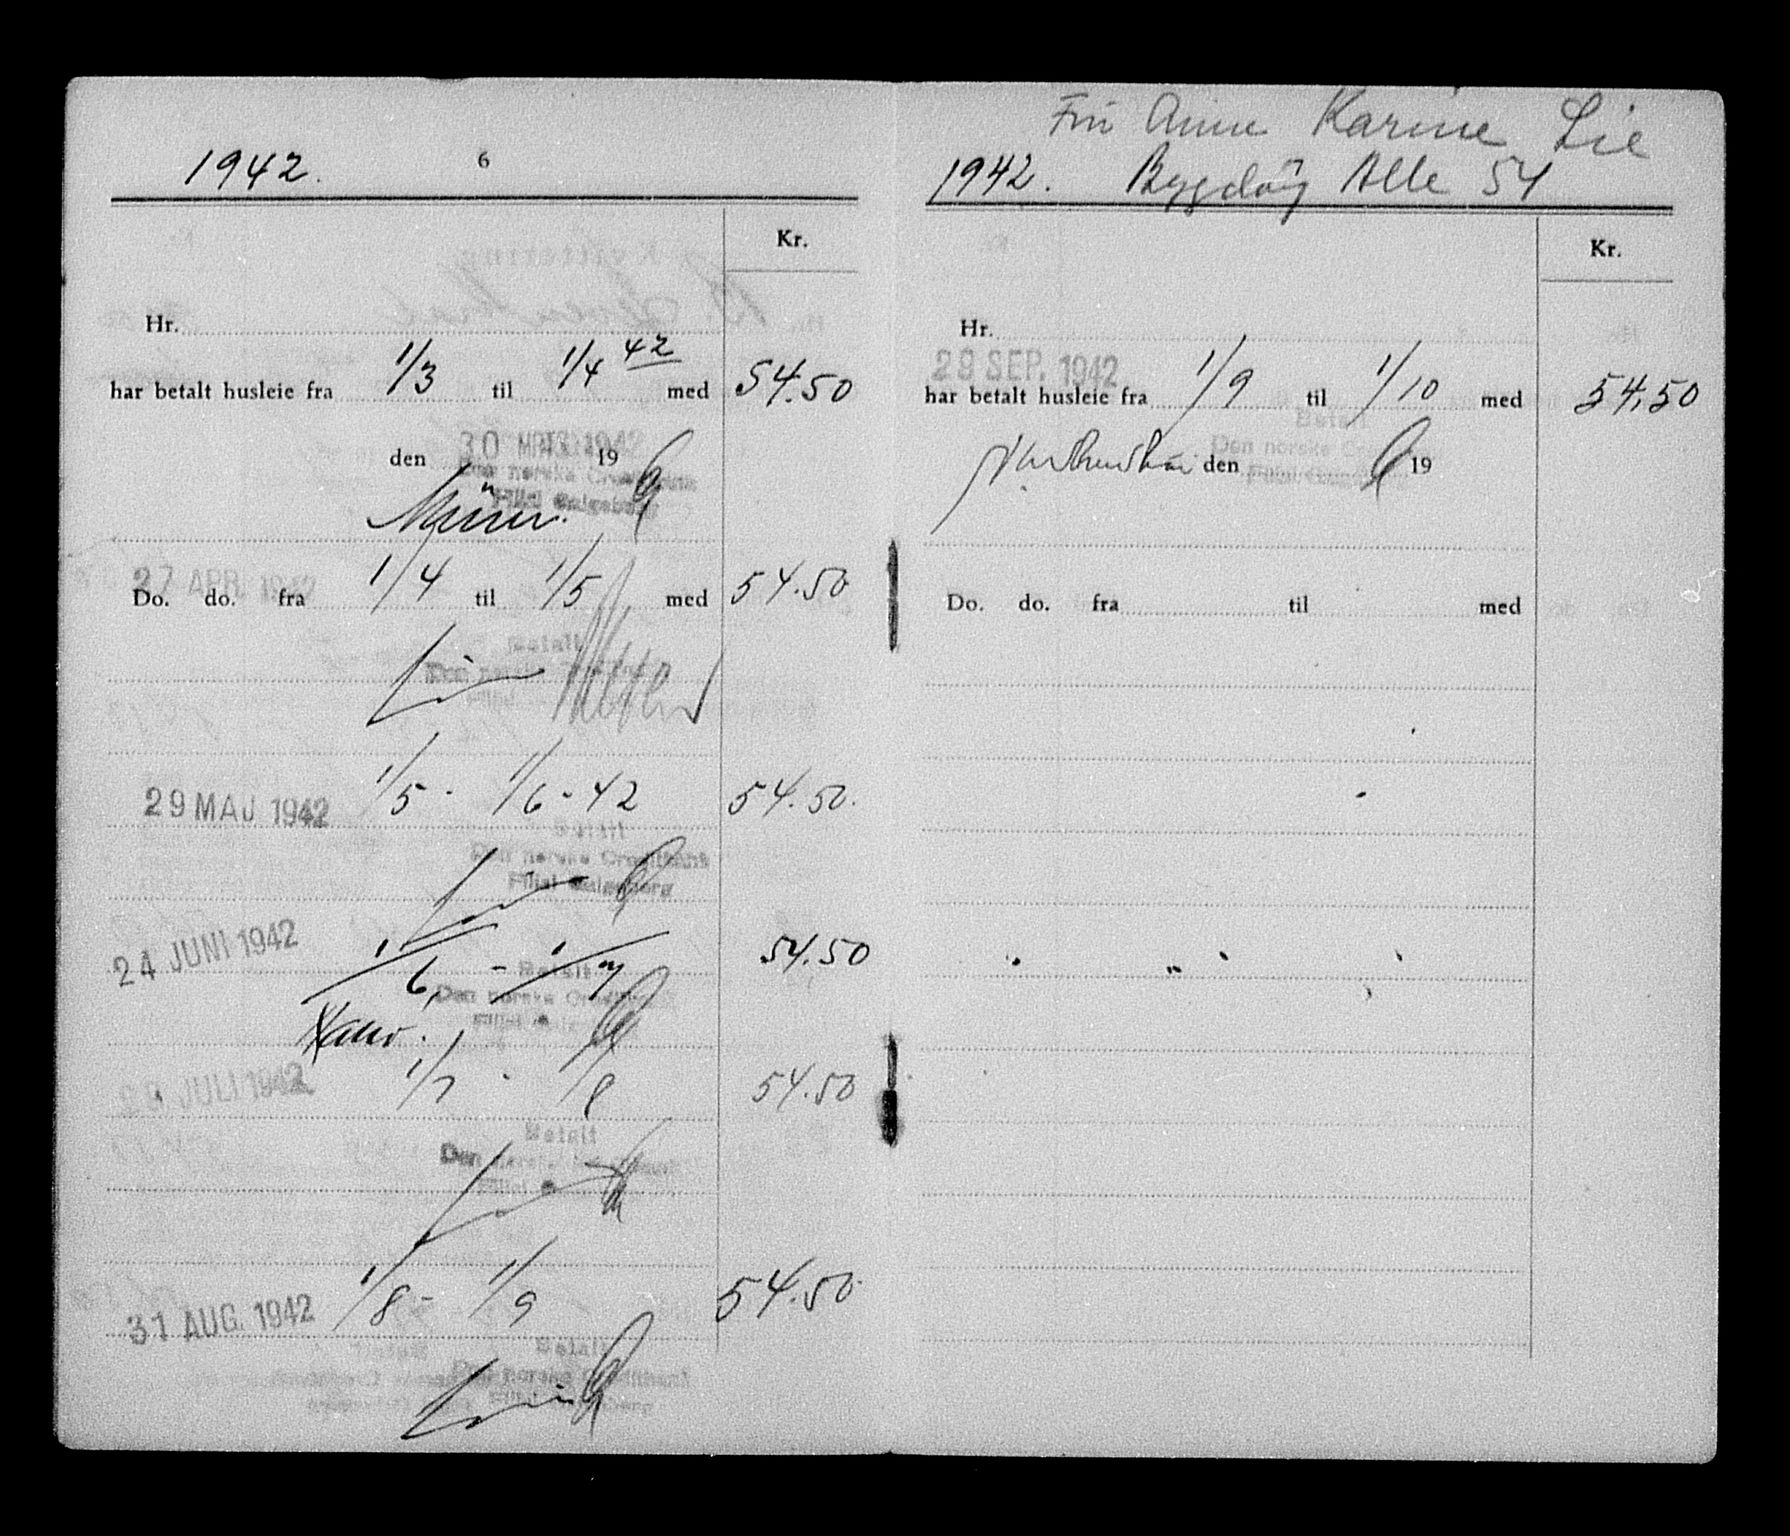 1942. 6
Kr.
Hr.
har betalt husleie fra 1/3 til 1/4 42 med 54.50
30 MRS. 1942
den 19
Den norske Creditbank
Filial
27 APR. 1942
Do. do. fra 1/4 til 1/5 med 54.50
Betalt
Den norske
Filial
29 MAJ 1942 1/5 - 1/6 - 42 54.50.
Betalt
Den norske Creditbank
Filial
24 JUNI 1942 1/6 - 1/7 54.50
Betalt
Den norske
Filial
JULI 1942 1/7 - 1/8 54.50
Betalt
Den norske
Filial
31 AUG. 1942 1/8 - 1/9 54.50
Betalt
Den norske Creditbank
Filial
Fru Anne Karine Lie
1942. Bygdöy Alle 54
Kr.
Hr.
29 SEP. 1942
har betalt husleie fra 1/9 til 1/10 med 54.50
Betalt
Den norske
den 19
Filial
Do. do. fra til med